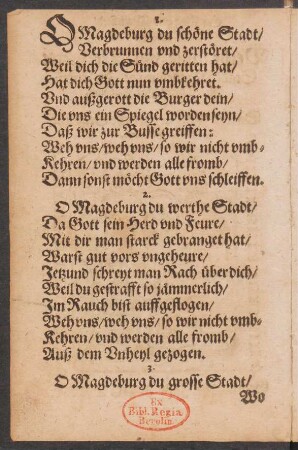 1.
O Magdeburg du schöne Stadt/
Verbrunnen vnd zerstöret/
Weil dich die Sünd geritten hat/
Hat dich Gott nun vmbkehret.
Vnd außgerott die Burger dein/
Die vns ein Spiegel worden seyn/
Daß wir zur Busse greiffen:
Weh vns/ weh vns/ so wir nicht vmb-
Kehren/ vnd werden alle fromb/
Dann sonst möcht Gott vns schleiffen.
2.
O Magdeburg du werthe Stadt/
Da Gott sein Herd vnd Feuret/
Mit dir man starck gebranget hat/
Warst gut vors vngeheure/
Jetzund schreyt man Rach über dich/
Weil du gestrafft so jämmerlich/
Im Rauch bist auffgeflogen/
Weh vns/ weh vns/ so wir nicht vmb-
Kehren/ vnd werden alle fromb/
Auß dem Vnheyl gezogen.
3.
O Magdeburg du grosse Stadt/
Wo
Ex
Bibl. Regia
Berolin.